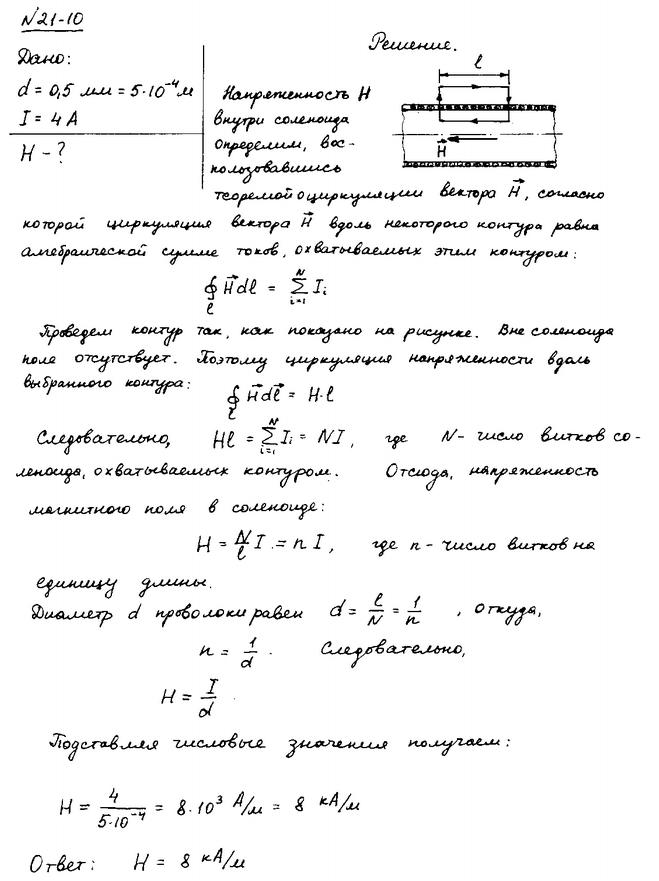 N21-10
Дано:
d = 0,5 мм = 5·10⁻⁴ м
I = 4 А
H - ?
Решение.
l
H⃗
Напряженность H
внутри соленоида
определим, вос-
пользовавшись
теоремой о циркуляции вектора H⃗, согласно
которой циркуляция вектора H⃗ вдоль некоторого контура равна
алгебраической сумме токов, охватываемых этим контуром:
∮_l H⃗dl = ∑_{i=1}^{N} I_i
Проведем контур так, как показано на рисунке. Вне соленоида
поле отсутствует. Поэтому циркуляция напряженности вдоль
выбранного контура:
∮_l H⃗dl⃗ = H·l
Следовательно, Hl = ∑_{i=1}^{N} I_i = NI, где N - число витков со-
леноида, охватываемых контуром. Отсюда, напряженность
магнитного поля в соленоиде:
H = N/l I = n I, где n - число витков на
единицу длины.
Диаметр d проволоки равен d = l/N = 1/n, откуда,
n = 1/d. Следовательно,
H = I/d.
Подставляя числовые значения получаем:
H = 4/(5·10⁻⁴) = 8·10³ А/м = 8 кА/м
Ответ: H = 8 кА/м